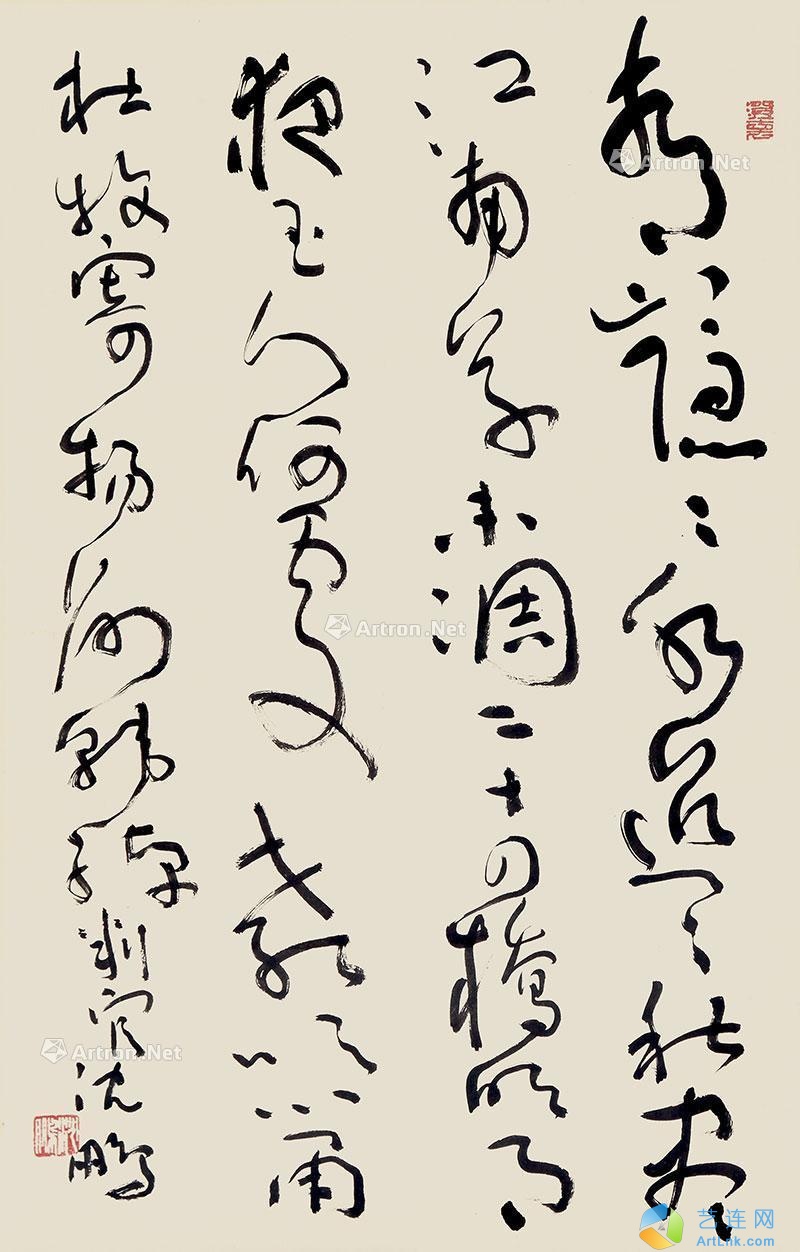 青山隱〻水迢〻秋盡
江南草未凋二十四橋明月
夜玉人何處教吹簫
杜牧寄揚州韓綽判官沈鵬
Artron.Net
Artron.Net
Artron.Net
艺连网
ArtLnk.com